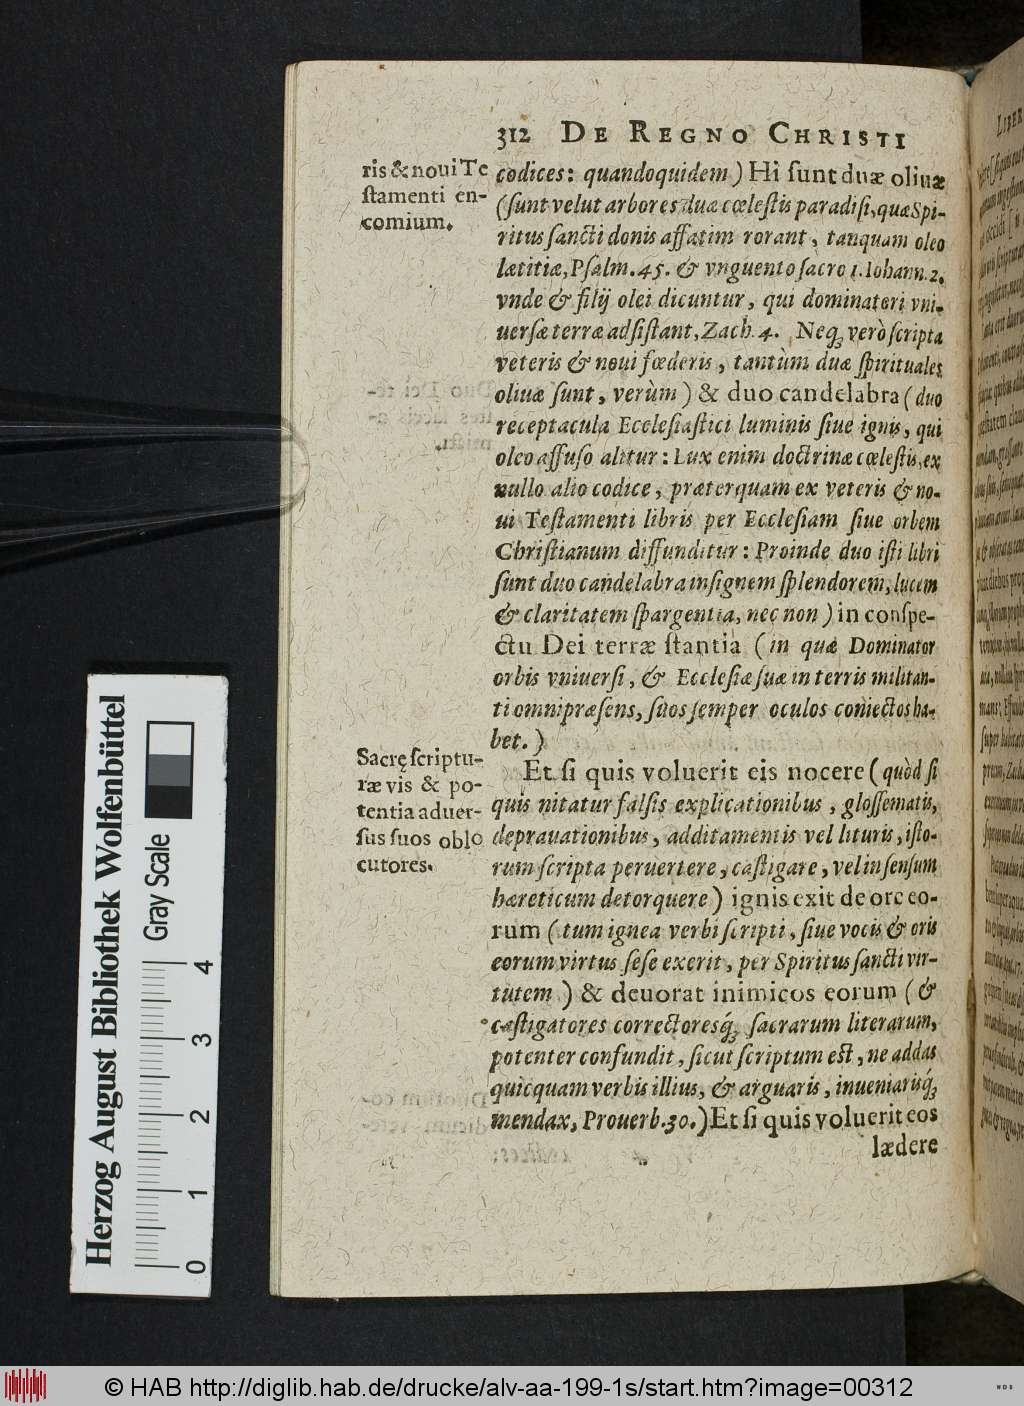 312 DE REGNO CHRISTI
ris & noui Te
ſtamenti en-
comium.
codices: quandoquidem) Hi ſunt duæ oliuæ
(ſunt velut arbores duæ cœleſtis paradiſi, quæ Spi-
ritus ſancti donis affatim rorant, tanquam oleo
lætitiæ, Pſalm. 45. & vnguento ſacro 1. Iohann. 2.
vnde & filij olei dicuntur, qui dominatori vni-
uerſæ terræ adſiſtant, Zach. 4. Neq; verò ſcripta
veteris & noui fœderis, tantùm duæ ſpirituales
oliuæ ſunt, verùm) & duo candelabra (duo
receptacula Eccleſiaſtici luminis ſiue ignis, qui
oleo affuſo alitur: Lux enim doctrinæ cœleſtis, ex
nullo alio codice, præterquam ex veteris & no-
ui Teſtamenti libris per Eccleſiam ſiue orbem
Chriſtianum diffunditur: Proinde duo iſti libri
ſunt duo candelabra inſignem ſplendorem, lucem
& claritatem ſpargentia, nec non) in conſpe-
ctu Dei terræ ſtantia (in quæ Dominator
orbis vniuerſi, & Eccleſiæ ſuæ in terris militan-
ti omnipræſens, ſuos ſemper oculos coniectos ha-
bet.)
Sacrę ſcriptu-
ræ vis & po-
tentia aduer-
ſus ſuos oblo
cutores.
Et ſi quis voluerit eis nocere (quòd ſi
quis nitatur falſis explicationibus, gloſſematis,
deprauationibus, additamentis vel lituris, iſto-
rum ſcripta peruertere, caſtigare, vel in ſenſum
hæreticum detorquere) ignis exit de ore eo-
rum (tum ignea verbi ſcripti, ſiue vocis & oris
eorum virtus ſeſe exerit, per Spiritus ſancti vir-
tutem) & deuorat inimicos eorum (&
caſtigatores correctoresq́; ſacrarum literarum,
potenter confundit, ſicut ſcriptum eſt, ne addas
quicquam verbis illius, & arguaris, inueniarisq́;
mendax, Prouerb. 30.) Et ſi quis voluerit eos
lædere
LIBER
Herzog August Bibliothek Wolfenbüttel
Gray Scale
0 1 2 3 4
© HAB http://diglib.hab.de/drucke/alv-aa-199-1s/start.htm?image=00312